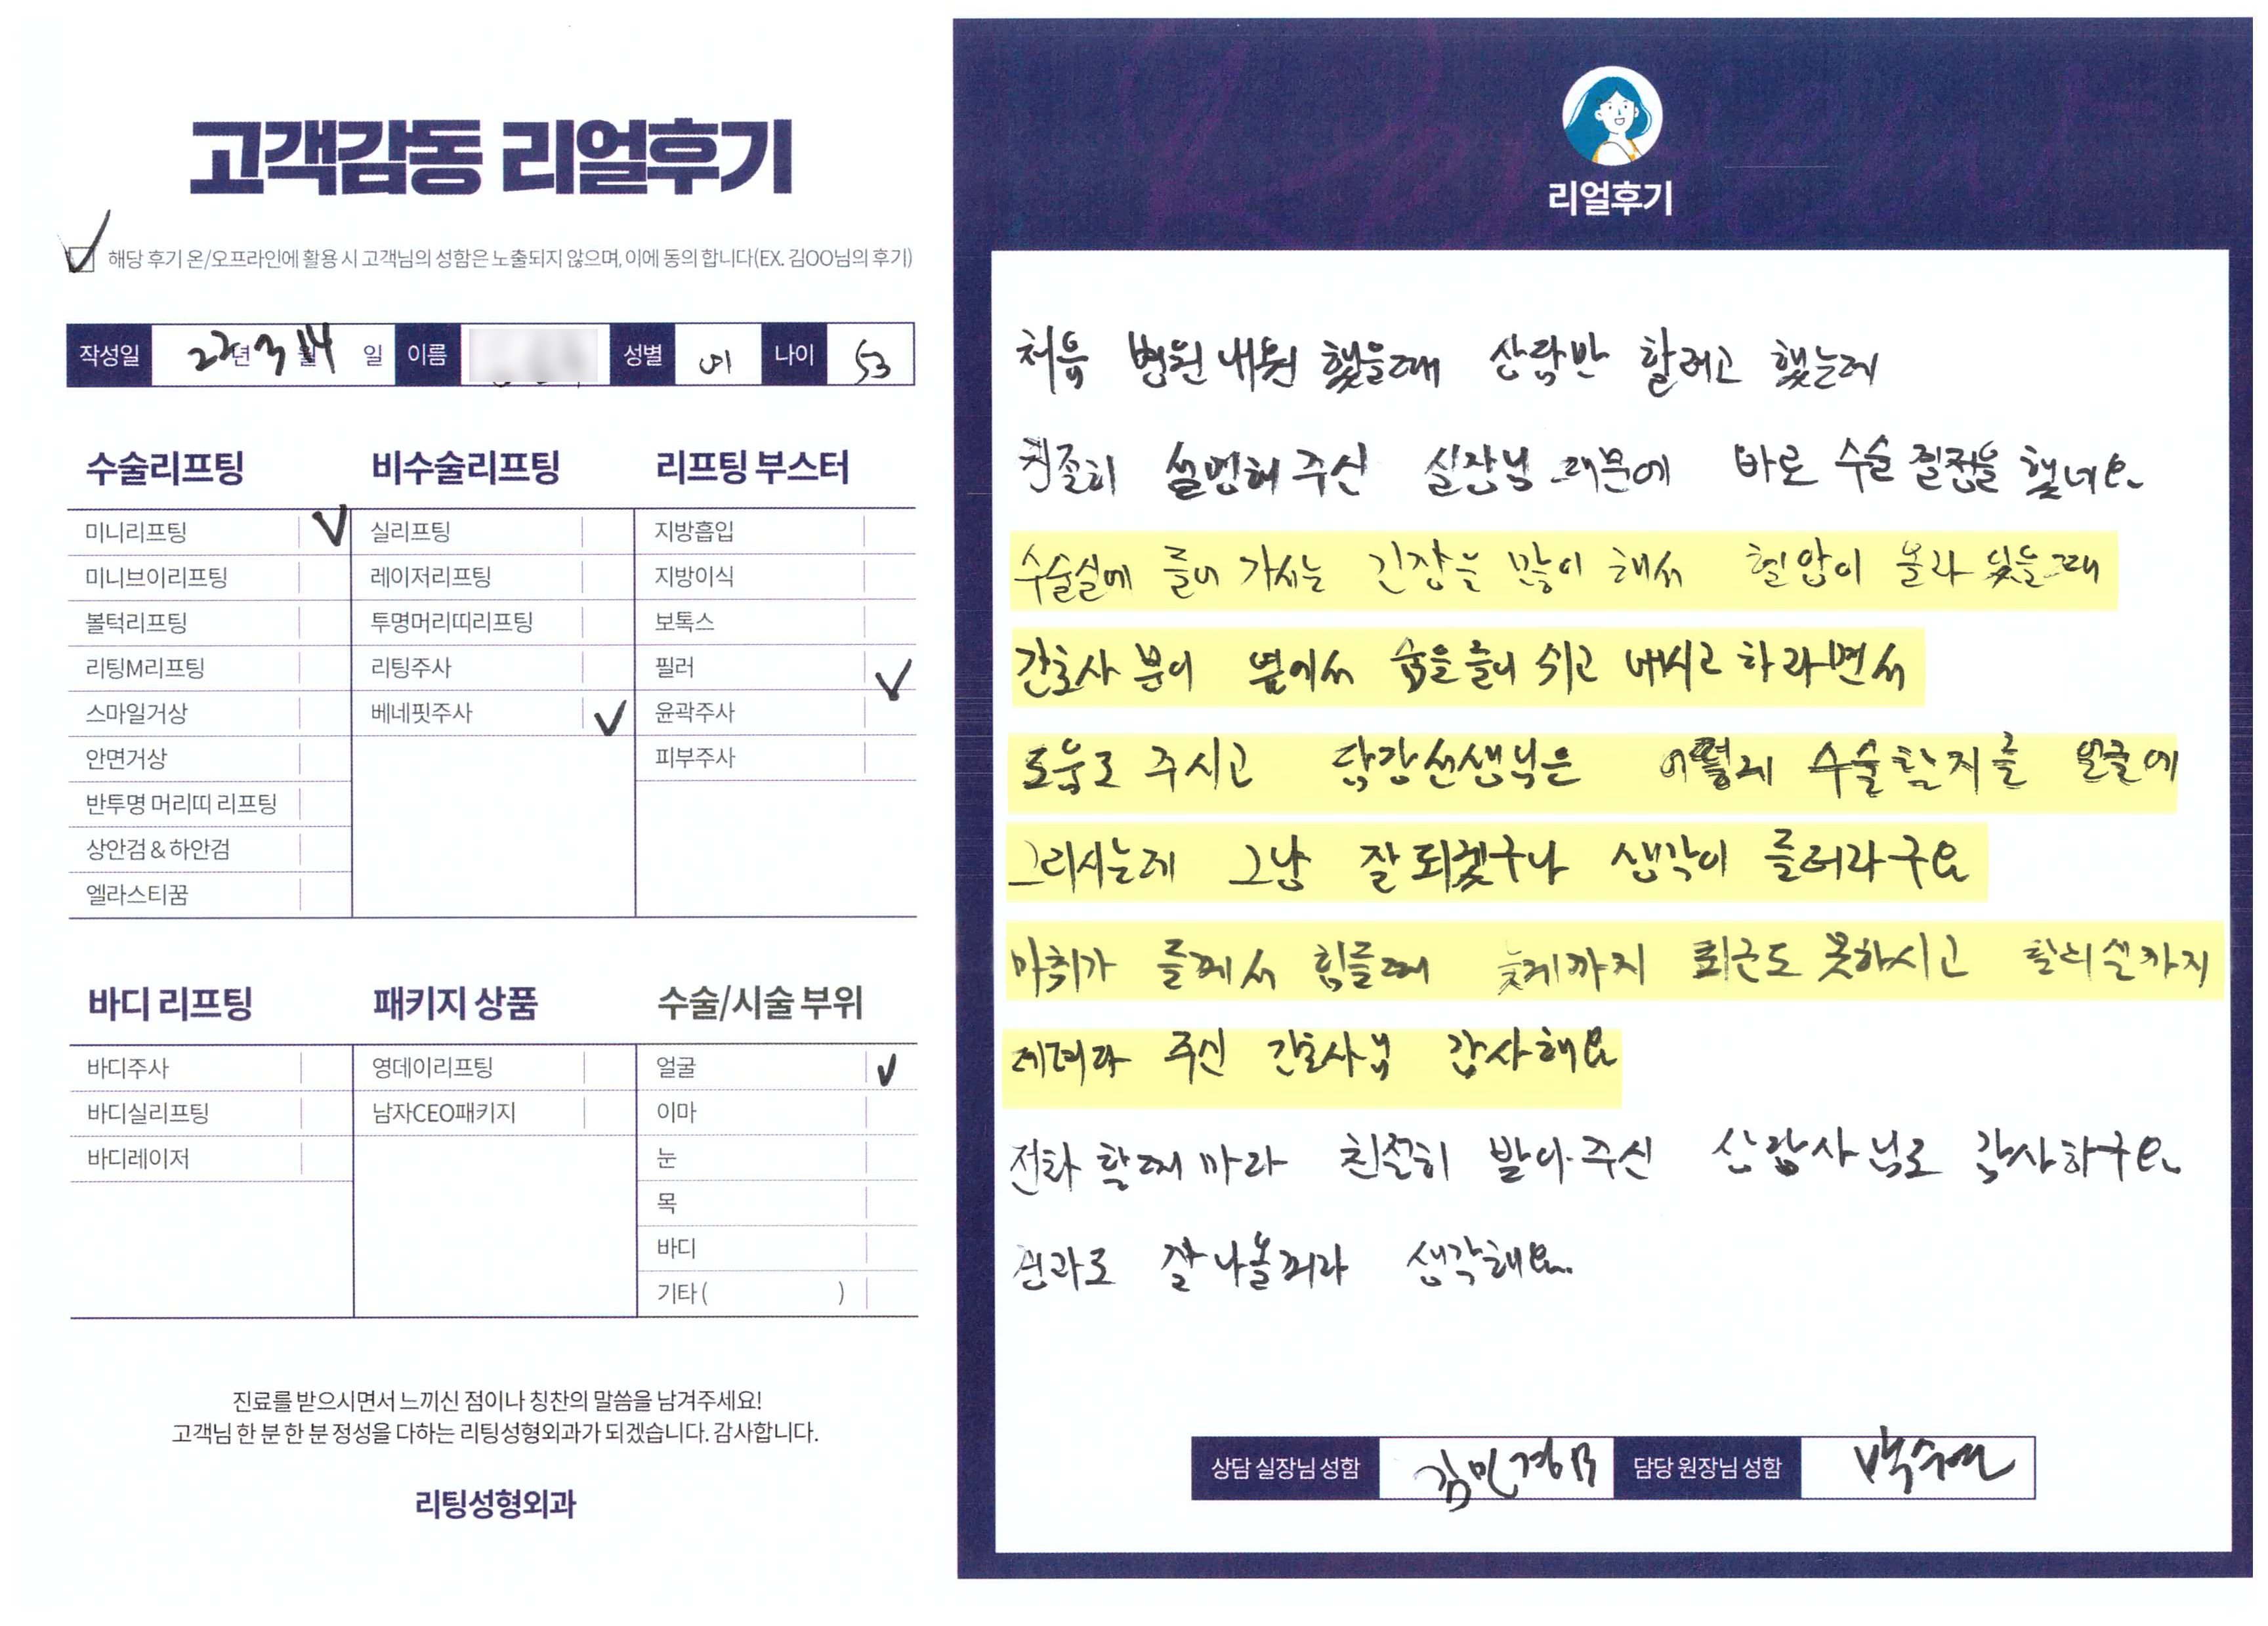 고객감동 리얼후기
해당 후기 온/오프라인에 활용 시 고객님의 성함은 노출되지 않으며, 이에 동의 합니다(EX. 김OO님의 후기)
작성일 22년 3월 14일 이름 성별 여 나이 53
수술리프팅
미니리프팅
미니브이리프팅
볼턱리프팅
리팅M리프팅
스마일거상
안면거상
반투명 머리띠 리프팅
상안검 & 하안검
엘라스티꿈
비수술리프팅
실리프팅
레이저리프팅
투명머리띠리프팅
리팅주사
베네핏주사
리프팅 부스터
지방흡입
지방이식
보톡스
필러
윤곽주사
피부주사
바디 리프팅
바디주사
바디실리프팅
바디레이저
패키지 상품
영데이리프팅
남자CEO패키지
수술/시술 부위
얼굴
이마
눈
목
바디
기타 ( )
진료를 받으시면서 느끼신 점이나 칭찬의 말씀을 남겨주세요!
고객님 한 분 한 분 정성을 다하는 리팅성형외과가 되겠습니다. 감사합니다.
리팅성형외과
리얼후기
처음 병원 내원 했을때 상담만 할려고 했는데
친절히 설명해 주신 실장님 때문에 바로 수술 결정을 했네요.
수술실에 들어 가서는 긴장을 많이 해서 혈압이 올라 있을때
간호사 분이 옆에서 숨을 들이 쉬고 내쉬고 하라면서
도움도 주시고 담당선생님은 어떻게 수술할지를 얼굴에
그리시는데 그냥 잘 되겠구나 생각이 들더라구요
마취가 들깨서 힘들때 늦게까지 퇴근도 못하시고 탈의실까지
데려다 주신 간호사님 감사해요
전화 할때 마다 친절히 받아 주신 상담사님도 감사하구요.
결과도 잘 나올꺼라 생각해요..
상담 실장님 성함 김민경B 담당 원장님 성함 박수연